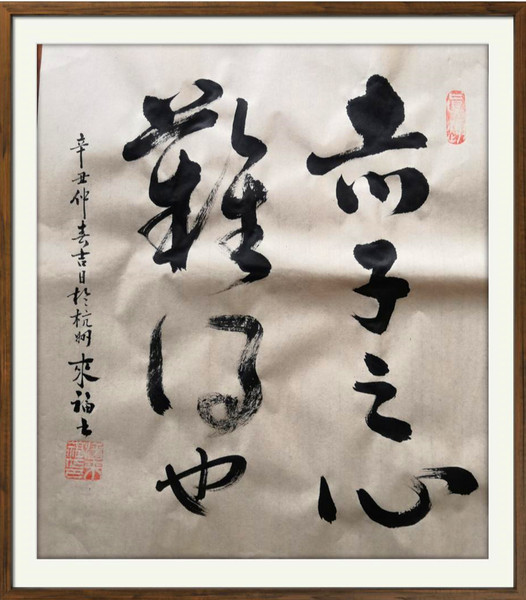 赤子之心
難得也
辛丑仲春吉日於杭州來福士